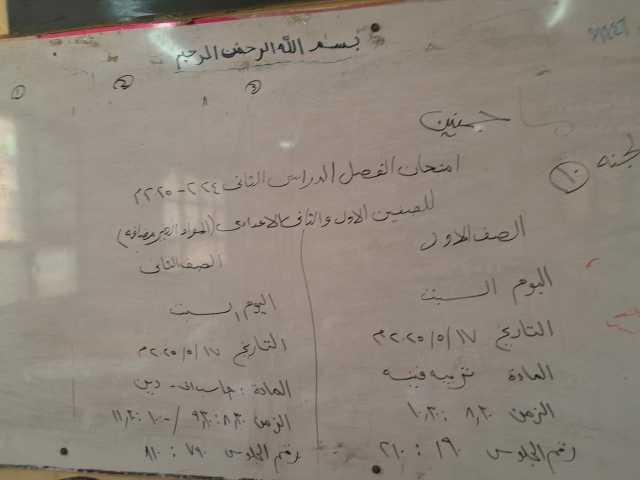 بسم الله الرحمن الرحيم
① ② ③
حسنين
لجنة ١٠
امتحان الفصل الدراسى الثانى ٢٠٢٤ - ٢٠٢٥م
للصفين الاول والثانى الاعدادى (المواد الغير مضافه)
الصف الاول
اليوم السبت
التاريخ ١٧/٥/٢٠٢٥م
المادة تربيه فنيه
الزمن ٨,٣٠ : ١٠,٣٠
رقم الجلوس ١٩٠ : ٢١٠
الصف الثانى
اليوم السبت
التاريخ ١٧/٥/٢٠٢٥م
المادة : حاسب الى - دين
الزمن ٨,٣٠ : ٩,٣٠ / ١٠٠ - ١١,٣٠
رقم الجلوس ٧٩٠ : ٨١٠